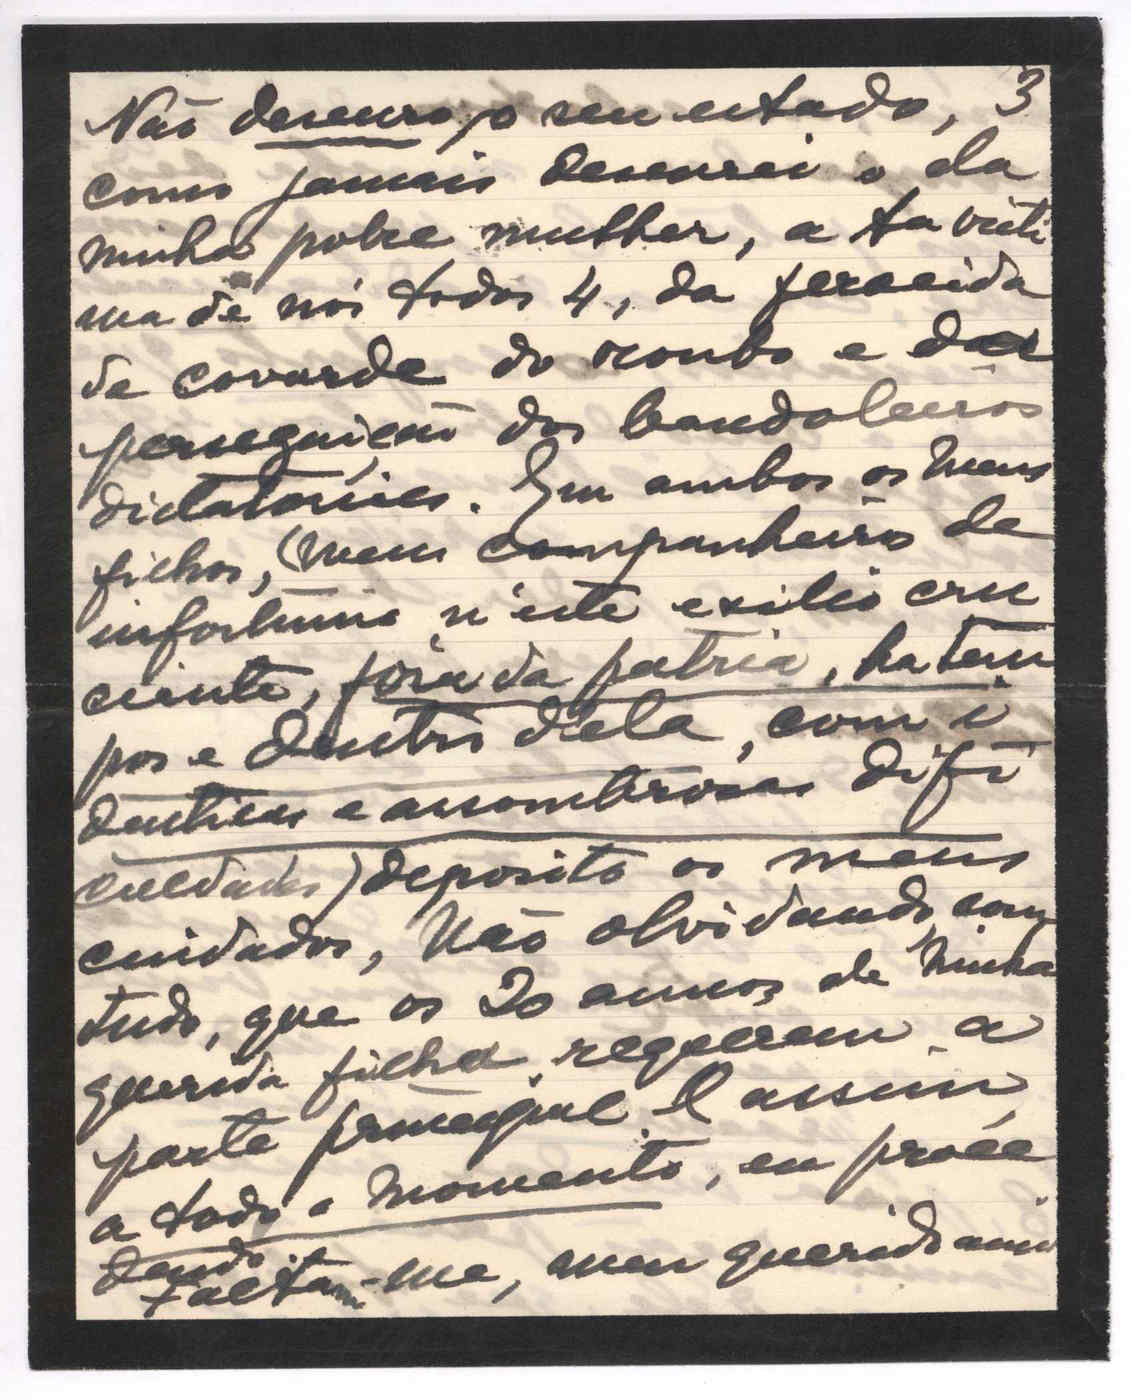 Não descuro, o seu estado, 3
como jamais descurei o da
minha pobre mulher, a 1a victi
ma de nós todos 4, da ferocida
de covarde do roubo e da
perseguição dos bandoleiros
dictatoriaes. Em ambos os meus
filhos, (meus companheiros de
infortunio n'este exilio cru
ciante, fóra da patria, ha tem
pos e dentro d'ela, com i
denticas e assombrosas difi
culdades) deposito os meus
cuidados, não olvidando, com
tudo, que os 20 annos de minha
querida filha, requerem a
parte principal. E assim,
a todo o momento, eu proce
dendo
-me, meu querido ami